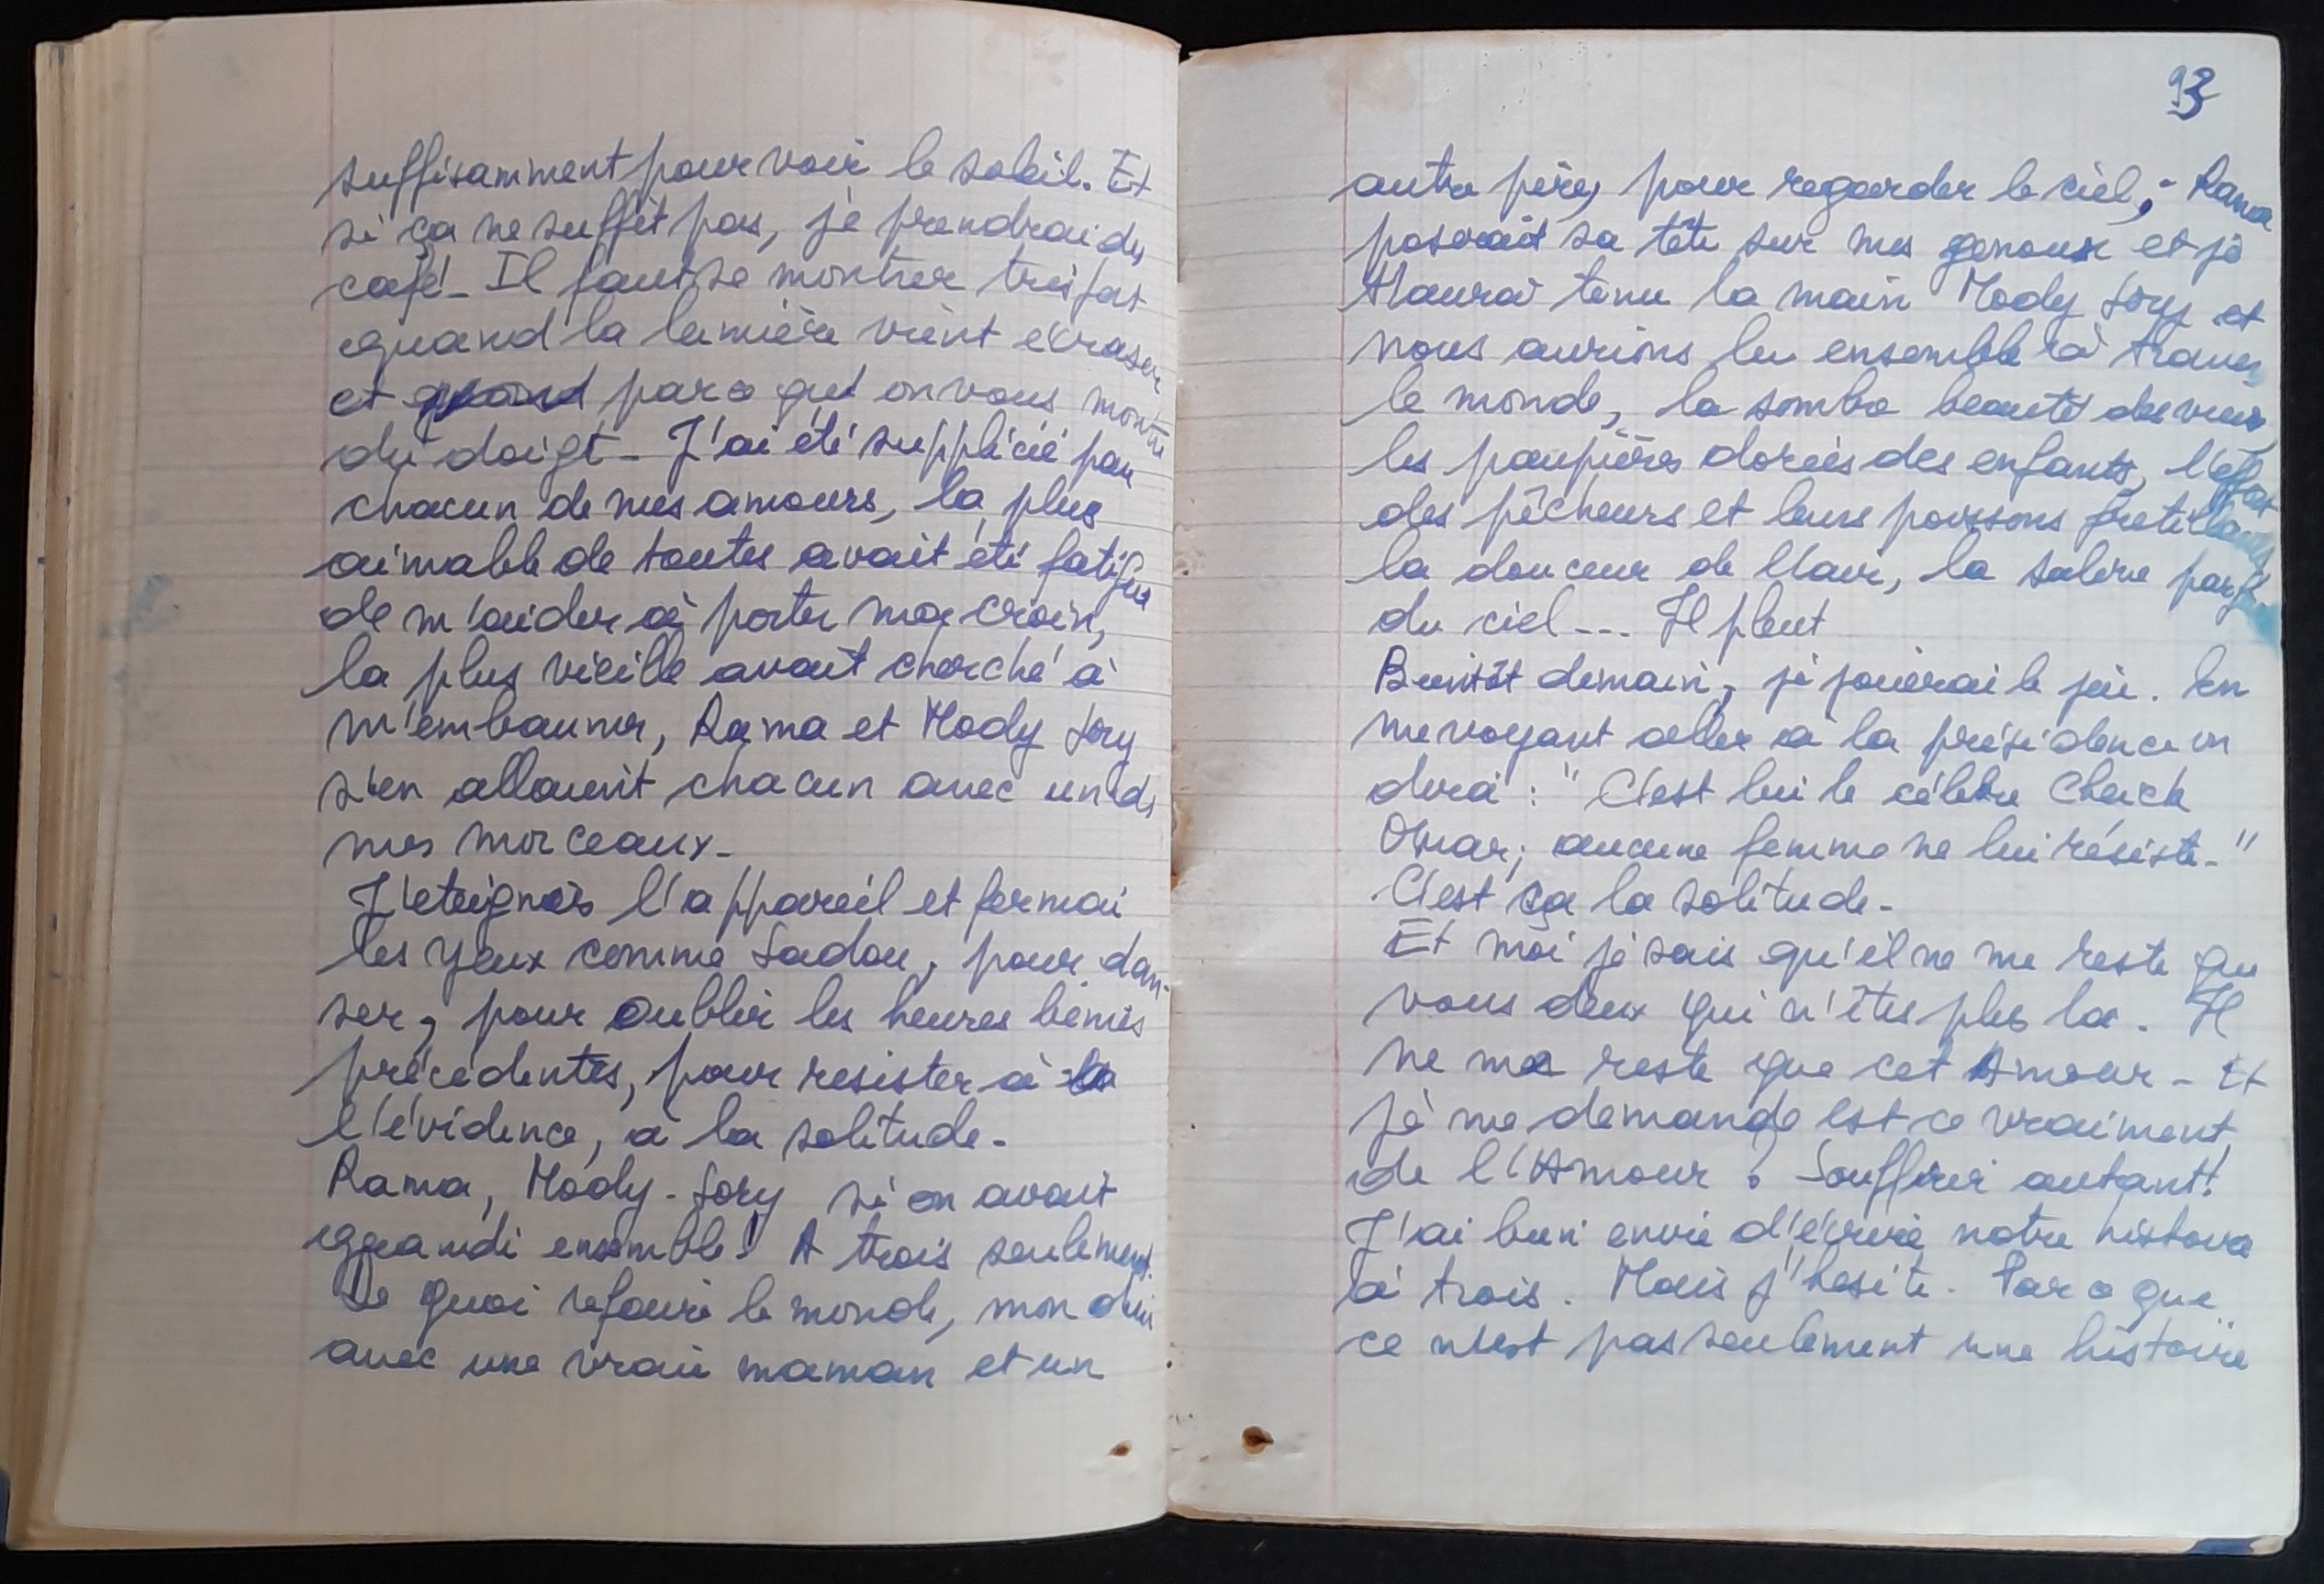 suffisamment pour voir le soleil. Et
si ça ne suffit pas, je prendrai du
café - Il faut se montrer très fort
quand la lumière vient écraser
et parce qu'on vous montre
du doigt - J'ai été supplicié par
chacun de mes amours, la plus
aimable de toutes avait été fatiguée
de m'aider à porter ma croix,
la plus vieille avait cherché à
m'embaumer, Rama et Mody Sory
s'en allaient chacun avec un de
mes morceaux -
J'éteignis l'appareil et fermai
les yeux comme Sadou, pour dan-
ser, pour oublier les heures bénies
précédentes, pour resister à
l'évidence, à la solitude -
Rama, Mody-Sory si on avait
grandi ensemble! A trois seulement.
De quoi refaire le monde, mon dieu
avec une vraie maman et un
93
autre père, pour regarder le ciel, - Rama
poserait sa tête sur mes genoux et je
tenu la main Mody Sory et
nous aurions lu ensemble à travers
le monde, la sombre beauté des vieux,
les paupières dorées des enfants, l'effort
des pêcheurs et leurs poissons fretillants
la douceur de l'air, la colère
du ciel --- Il pleut
Bientôt demain, je jouerai le jeu. En
me voyant aller à la présidence on
dira : "C'est lui le célèbre Cheick
Omar; aucune femme ne lui résiste - "
C'est ça la solitude -
Et moi je sais qu'il ne me reste que
vous deux qui n'êtes plus la. Il
ne me reste que cet Amour - Et
je me demande est ce vraiment
de l'Amour ? Souffrir autant!
J'ai bien envie d'écrire notre histoire
à trois. Mais j'hesite. Parce que
ce n'est pas seulement une histoire